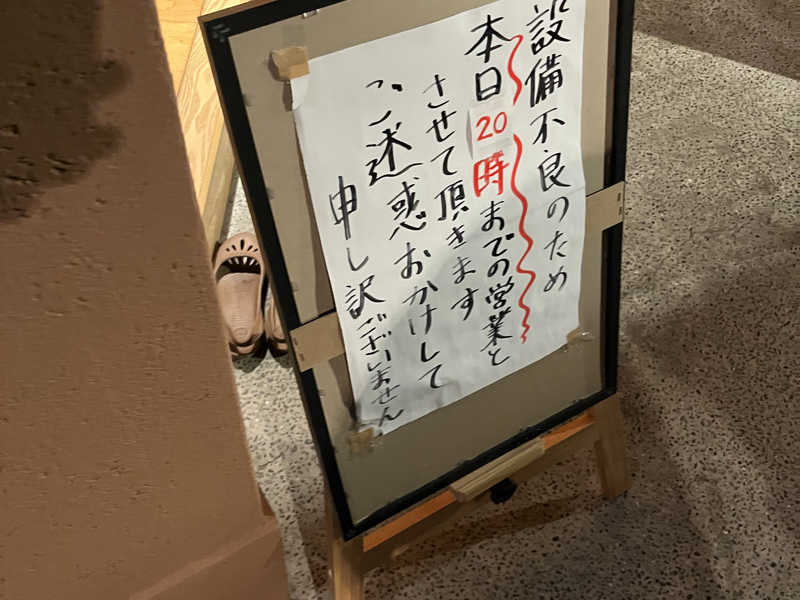 設備不良のため
本日20時までの営業と
させて頂きます
ご迷惑おかけして
申し訳ございません